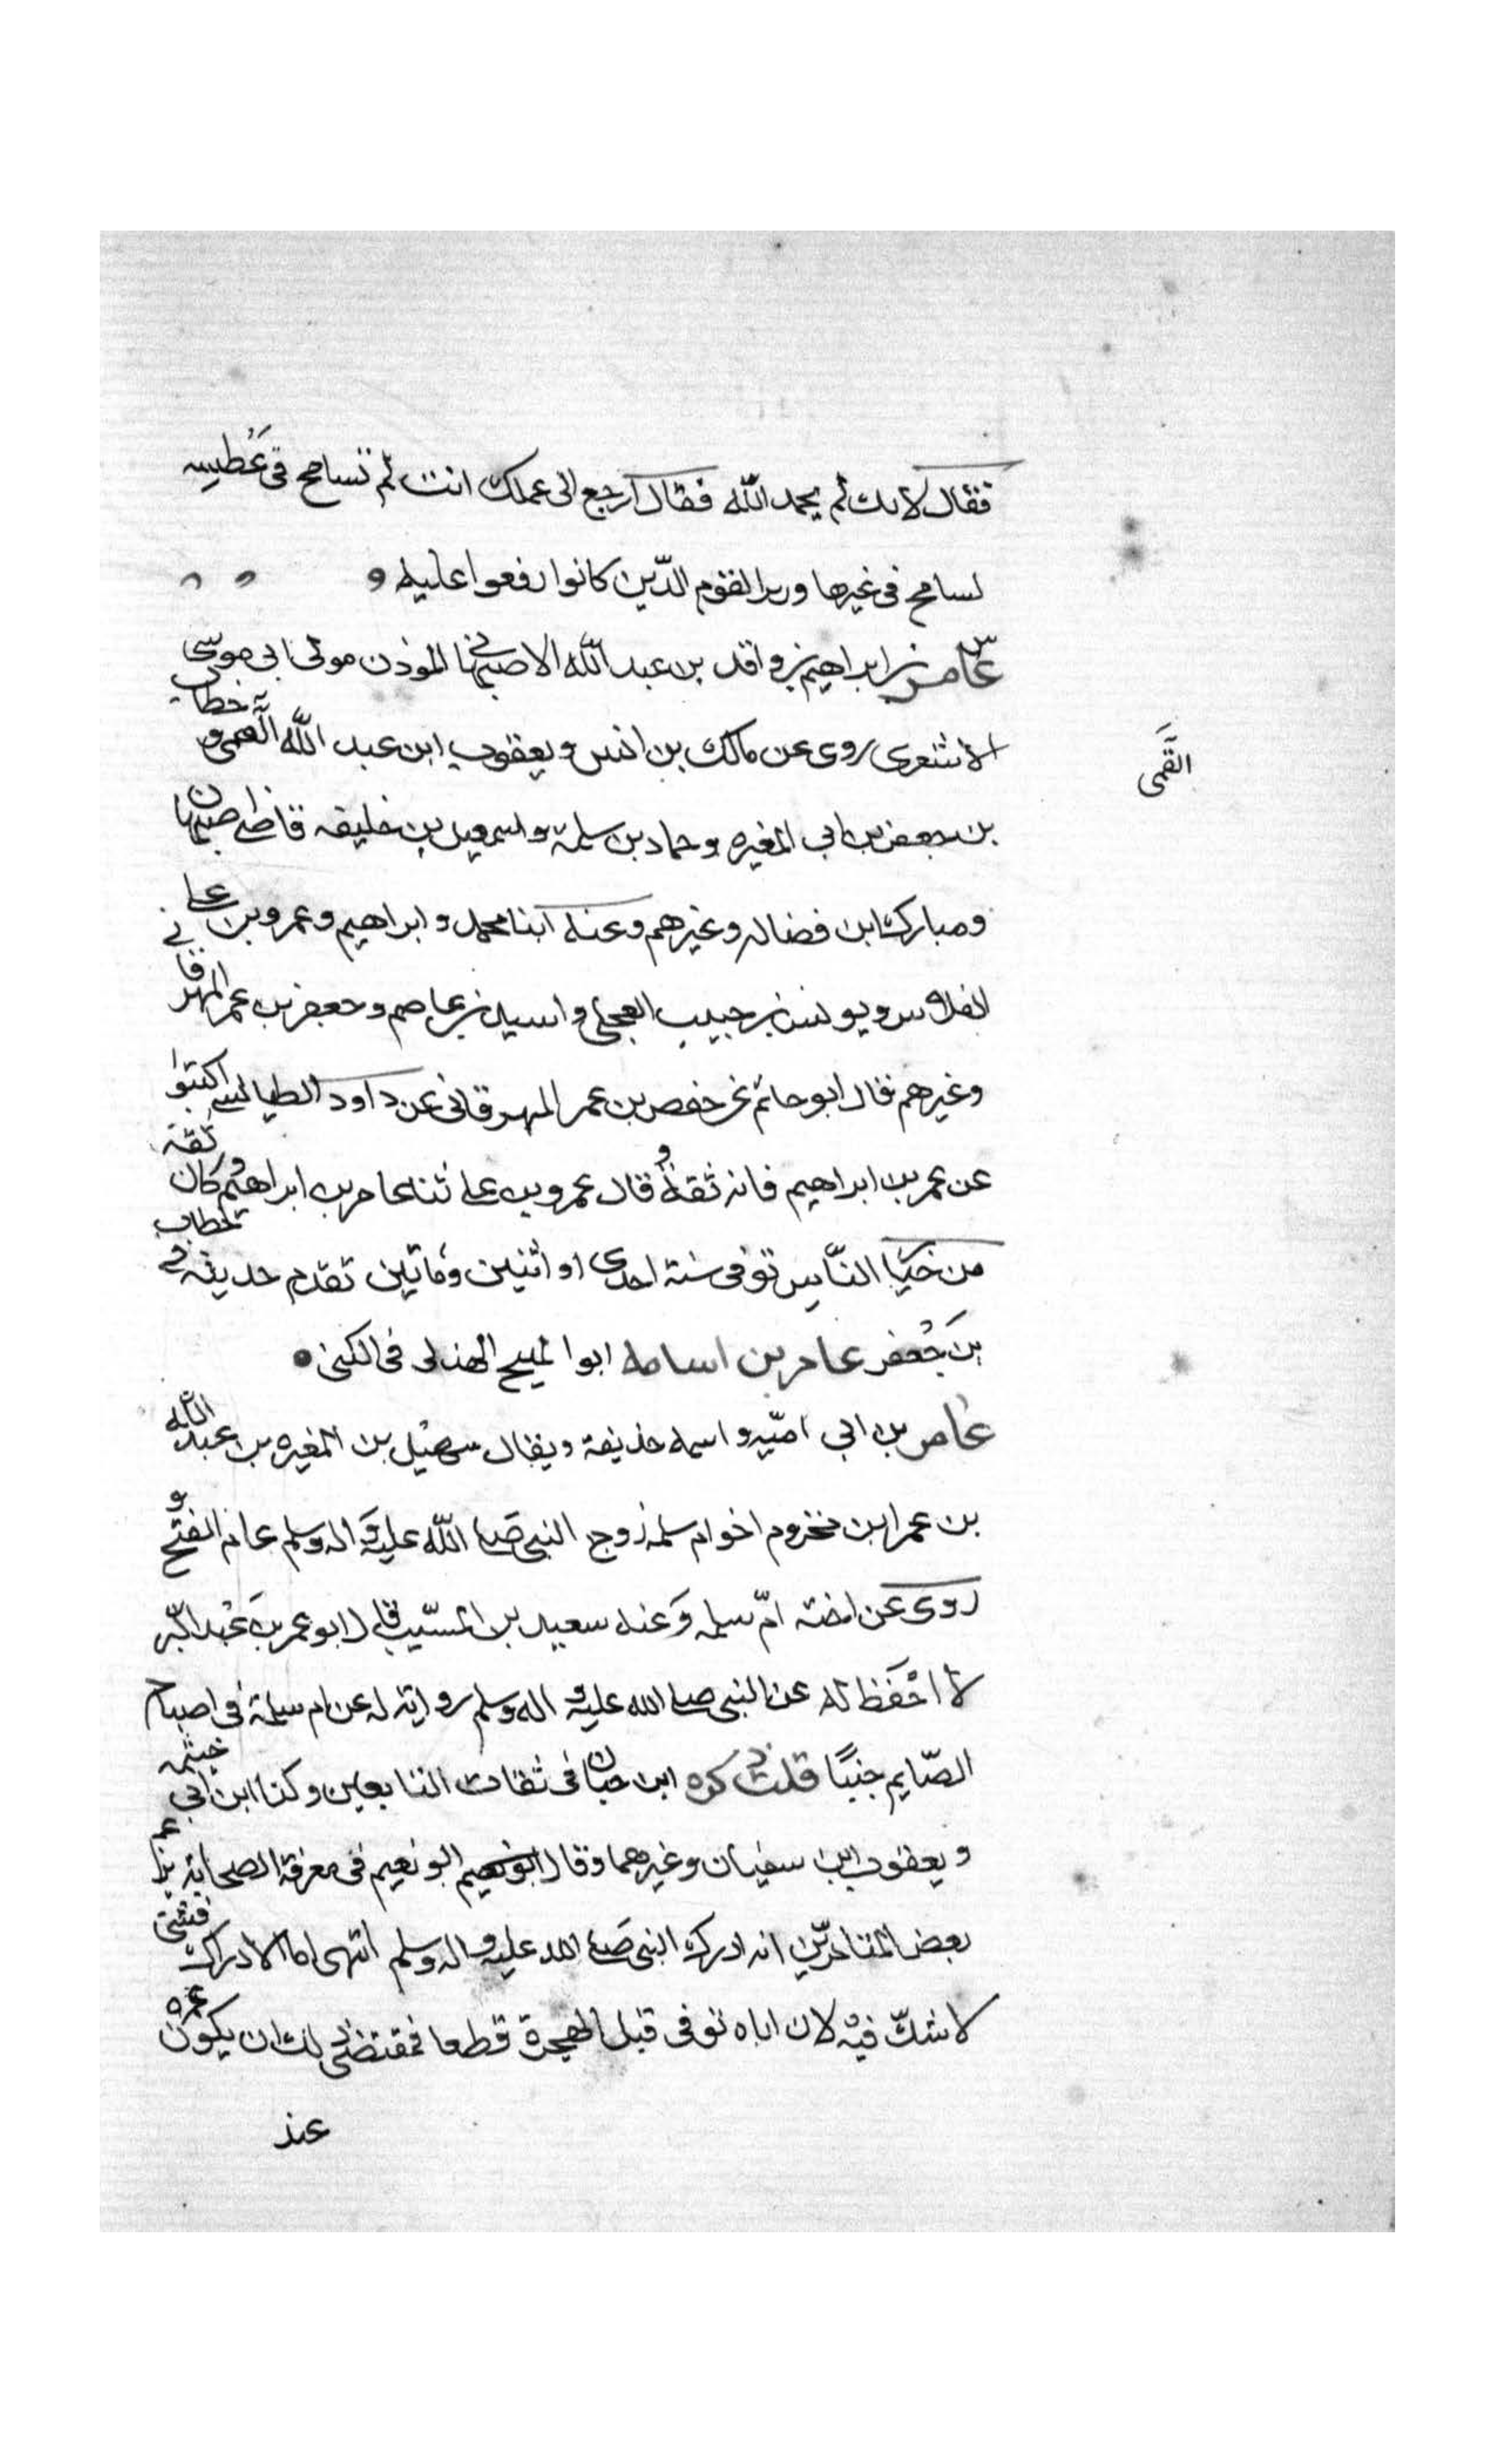 فقال لانك لم يحمد الله فقال ارجع الى عملك انت لم تسامح فى عطسه
لسامح فى غيرها وربر القوم الذين كانوا رفعوا عليه
س عامر بن ابراهيم بن واقد بن عبد الله الاصبهانى الموذن مولى ابى موسى
الاشعرى روى عن مالك بن انس ويعقوب ابن عبد الله القمى و خطاب
القمى
بن جعفر بن ابى المغيره وحماد بن سلمة واسمعيل بن خليفه قاضى اصبهان
ومبارك ابن فضاله وغيرهم وعنه ابنا محمد و ابراهيم وعمرو بن على
الفلاس ويونس بن حبيب العجلى واسيد بن عاصم وحعفر بن عمر المهرقانى
وغيرهم قال ابو حاتم عن حفص بن عمر المهرقانى عن داود الطيالسى اكتبوا
عن عمر بن ابراهيم فانه ثقة و قال عمرو بن على ثنا عامر بن ابراهيم وكان ثقة
من خيا الناس توفى سنة احدى او اثنين ومأتين تقدم حديثه فى الخطاب
بن جعفر عامر بن اسامه ابوا لميح الهذلى فى الكنى
عامر بن ابى اميه واسمه حذيفة ويقال سهيل بن المغيره بن عبد الله
بن عمر ابن مخزوم اخو ام سلمه زوج النبى صلى الله عليه وآله وسلم عام الفتح و
روى عن اخته ام سلمه وعنه سعيد بن المسيب قال ابو عمر بن عبد البر
لا احفظ له عن النبى صلى الله عليه و اله وسلم رواية له عن ام سلمة فى اصباح
الصايم جنبا قلت ذكره ابن حبان فى ثقات التابعين وكذا ابن ابى خيثمه
ويعقوب ابن سفيان وغيرهما وقال ابو نعيم ابو نعيم فى معرفة الصحابة زعم
بعض المتاخرين انه ادرك النبى صلى الله عليه و اله وسلم انتهى اما الادراك فشئ
لا شك فيه لان اباه توفى قبل الهجرة قطعا فمقتضى ذلك ان يكون عمره
عند